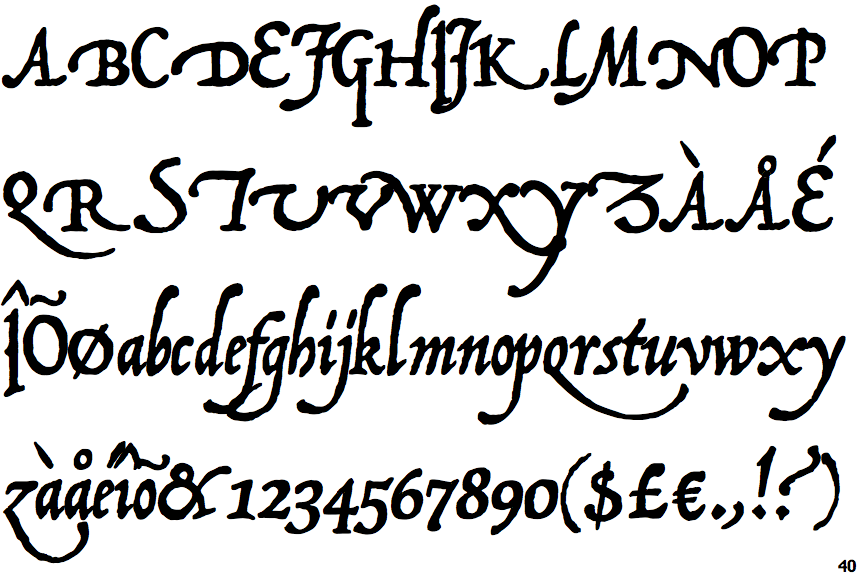 ABCDEFGHIJKLMNOP
QRSTUVWXYZÀÅÉ
ÎÕØabcdefghijklmnopqrstuvwxy
zàåéîõ&1234567890($£€.,!?)
40